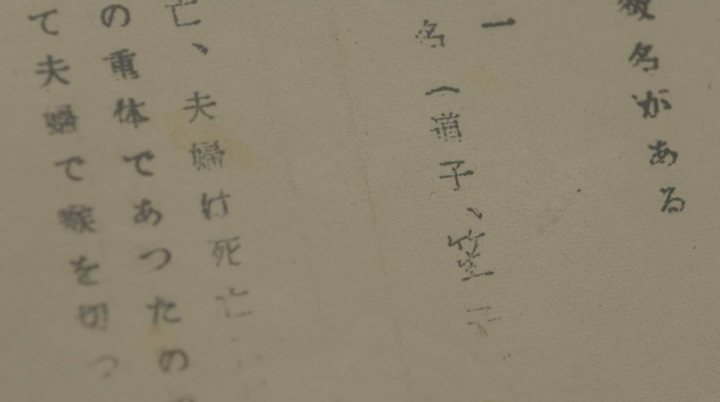 数名がある
一
名（道子、笠子
亡、夫婦は死亡
の重体であつたの
て夫婦で喉を切つ